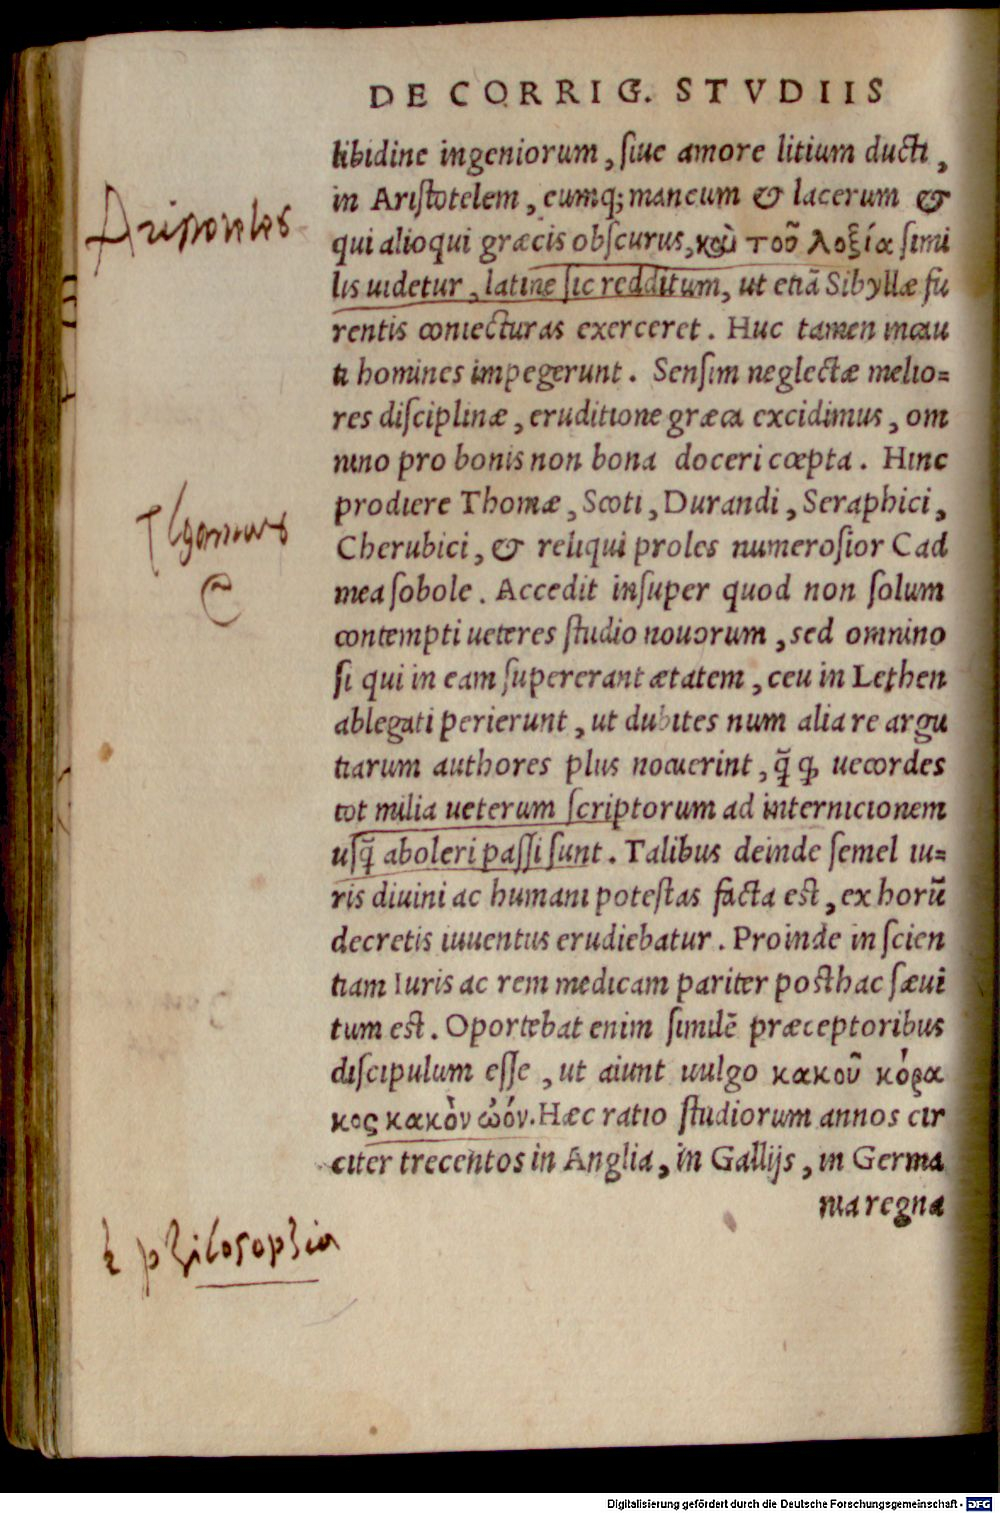 DE CORRIG. STVDIIS
libidine ingeniorum, ſiue amore litium ducti,
in Ariſtotelem, eumq; mancum & lacerum &
qui alioqui græcis obſcurus, καὶ τοῦ λοξία ſimi
lis uidetur, latine ſic redditum, ut etiā Sibyllæ fu
rentis coniecturas exerceret. Huc tamen incau
ti homines impegerunt. Senſim neglectæ melio=
res diſciplinæ, eruditione græca excidimus, om
nino pro bonis non bona doceri cœpta. Hinc
prodiere Thomæ, Scoti, Durandi, Seraphici,
Cherubici, & reliqui proles numeroſior Cad
mea ſobole. Accedit inſuper quod non ſolum
contempti ueteres ſtudio nouorum, sed omnino
ſi qui in eam ſupererant ætatem, ceu in Lethen
ablegati perierunt, ut dubites num alia re argu
tiarum authores plus nocuerint, q̃ q uecordes
tot milia ueterum ſcriptorum ad internicionem
uſq̃ aboleri paſſi sunt. Talibus deinde ſemel iu=
ris diuini ac humani poteſtas facta est, ex horū
decretis iuuentus erudiebatur. Proinde in ſcien
tiam Iuris ac rem medicam pariter posthac ſæui
tum est. Oportebat enim ſimilē præceptoribus
diſcipulum eſſe, ut aiunt uulgo κακοῦ κόρα
κος κακὸν ὠόν. Hæc ratio ſtudiorum annos cir
citer trecentos in Anglia, in Gallijs, in Germa
nia regna
Aristoteles
philosophia
Digitalisierung gefördert durch die Deutsche Forschungsgemeinschaft - DFG